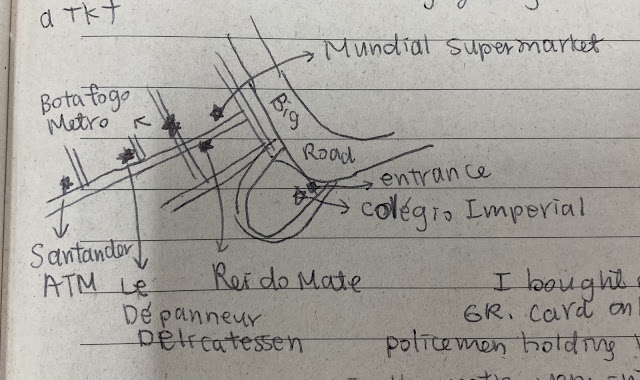 a TKT
Mundial Supermarket
Botafogo
Metro
Big
Road
entrance
colégio Imperial
Santander
ATM
Le
Dépanneur
Délicatessen
Rei do Mate
I bought
GR. card on
policemen holding